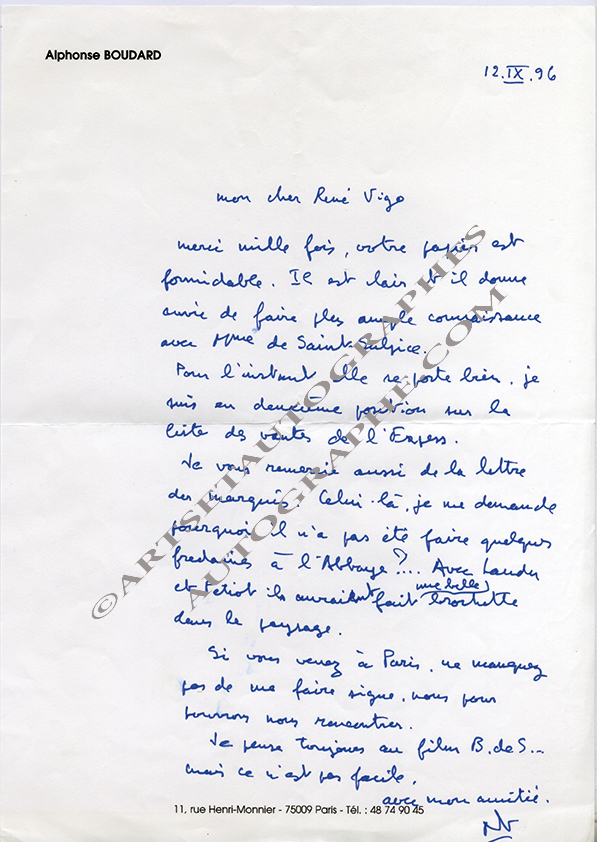 Alphonse BOUDARD
12.IX.96
mon cher René Vigo
merci mille fois, votre papier est
formidable. Il est clair et il donne
envie de faire plus ample connaissance
avec Mme de Saint-Sulpice.
Pour l'instant elle se porte bien, je
suis en deuxième position sur la
liste des ventes de l'Express.
Je vous remercie aussi de la lettre
du marquis. Celui-là, je me demande
pourquoi il n'a pas été faire quelques
fredaines à l'Abbaye?... Avec Landru
et Petiot ils auraient fait une belle brochette
dans le paysage.
Si vous venez à Paris, ne manquez
pas de me faire signe, nous
pourrons nous rencontrer.
Je pense toujours au film B. de S...
mais ce n'est pas facile.
avec mon amitié.
11, rue Henri-Monnier - 75009 Paris - Tél. : 48 74 90 45
©ARTSETAUTOGRAPHES
AUTOGRAPHE.COM